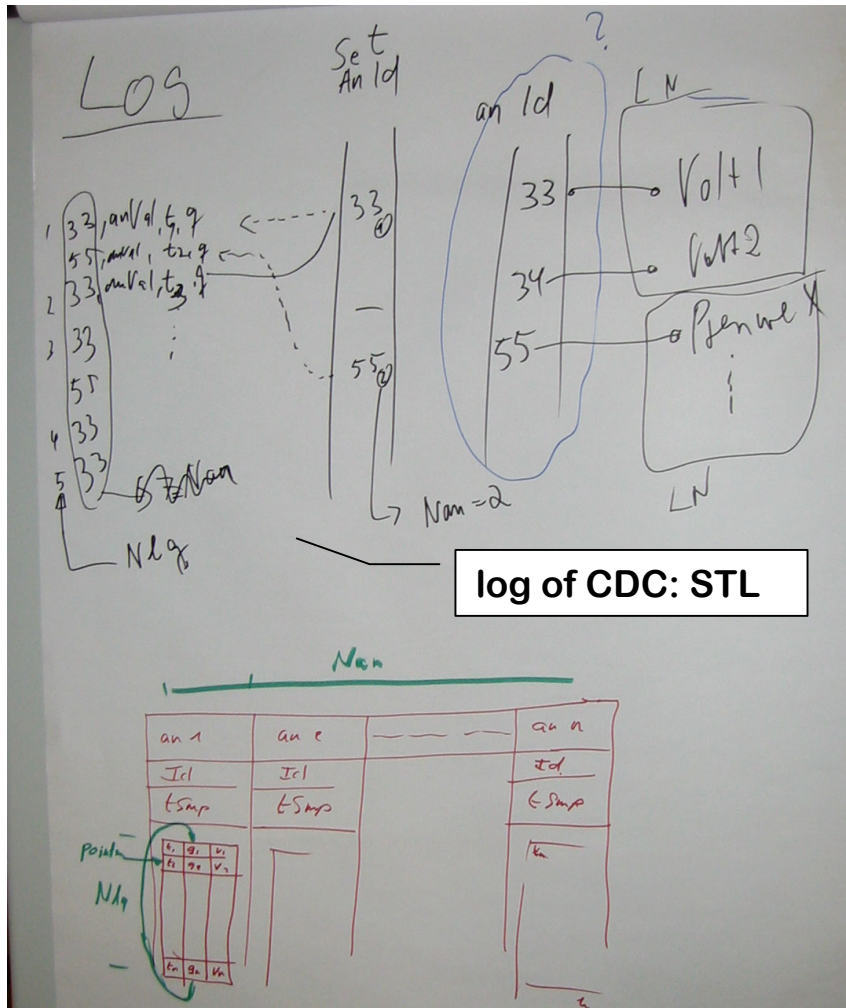 Log
Set
An Id
?
an Id
LN
1 33, anVal, t, q
55, anVal, t2, q
2 33, anVal, t3, q
3 33
55
4 33
5 33
Nlg
33 1
—
55 2
Nan=2
33
34
55
Volt1
Volt2
LN
log of CDC: STL
Nan
an 1
an 2
an n
Id
Id
Id
tSmp
tSmp
tSmp
t1 q1 v1
t2 q2 v2
tn qn vn
Nlg